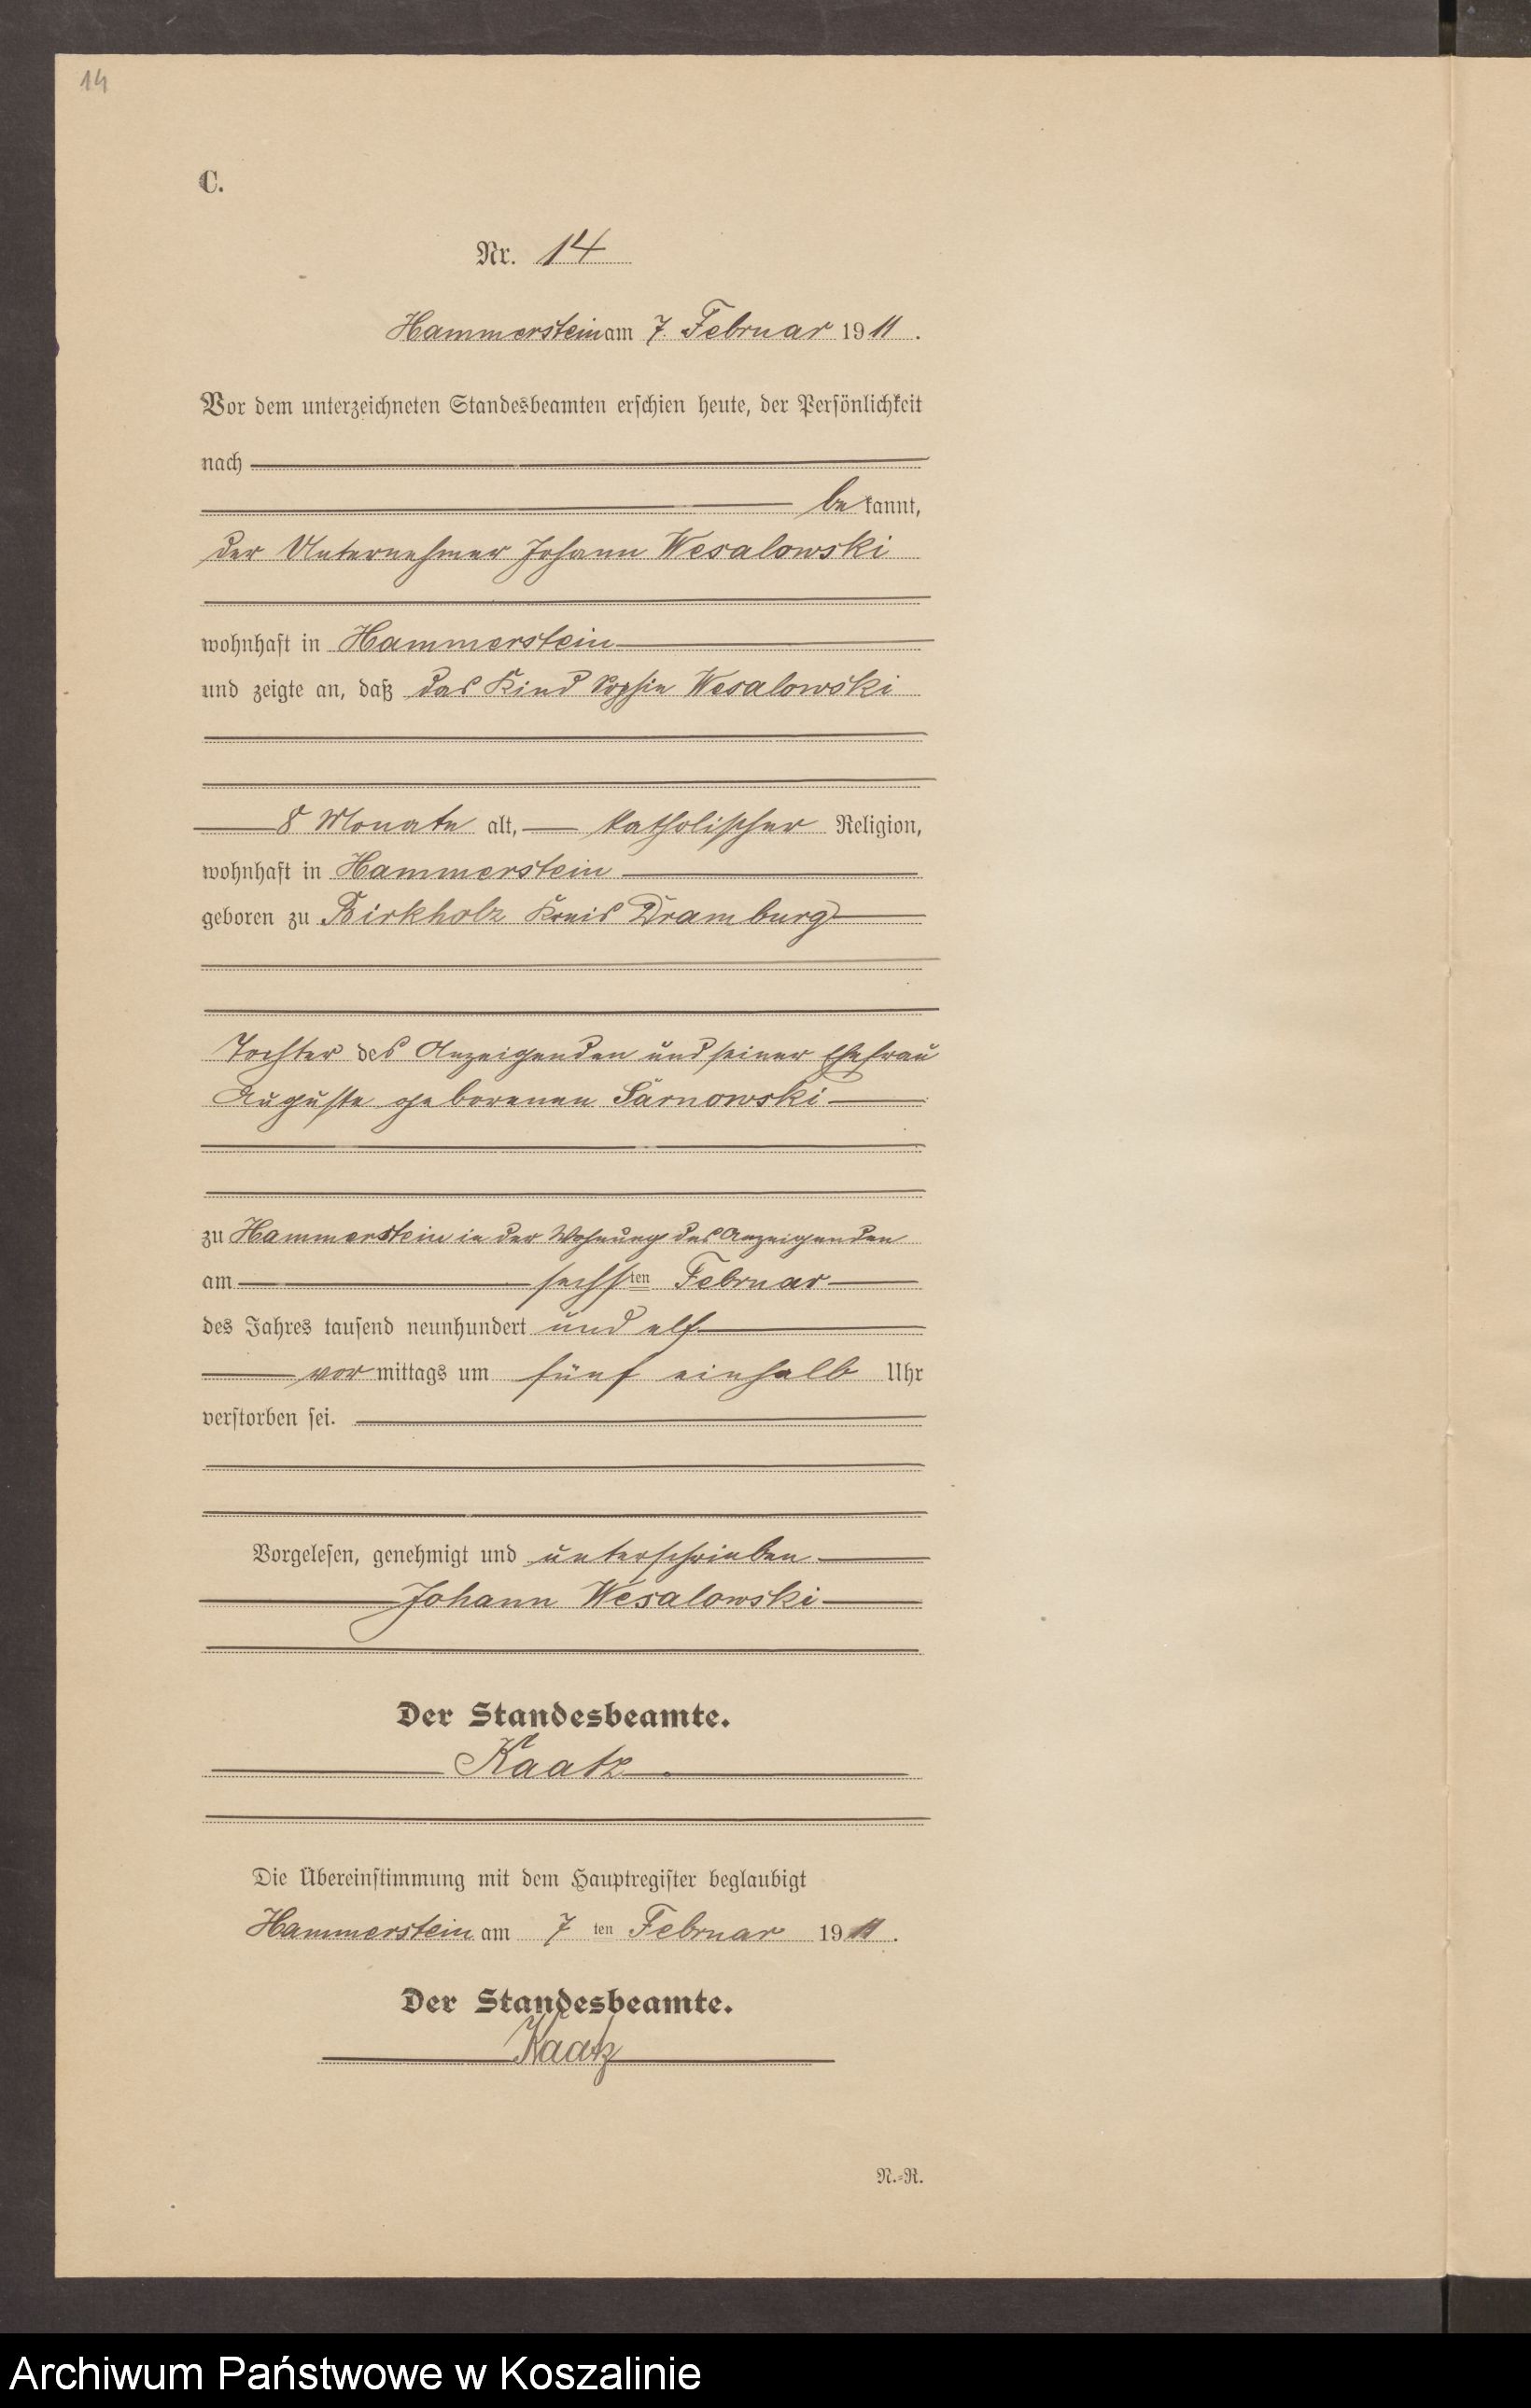 14
C.
Nr. 14
Hammerstein am 7. Februar 1911.
Vor dem unterzeichneten Standesbeamten erschien heute, der Persönlichkeit
nach
bekannt,
der Unternehmer Johann Wesalowski
wohnhaft in Hammerstein
und zeigte an, daß das Kind Sophie Wesalowski
8 Monate alt, katholischer Religion,
wohnhaft in Hammerstein
geboren zu Birkholz Kreis Dramburg
Tochter des Anzeigenden und seiner Ehefrau
Auguste geborenen Sarnowski
zu Hammerstein in der Wohnung des Anzeigenden
am sechsten Februar
des Jahres tausend neunhundert und elf
vormittags um fünf einhalb Uhr
verstorben sei.
Vorgelesen, genehmigt und unterschrieben
Johann Wesalowski
Der Standesbeamte.
Kaatz.
Die Übereinstimmung mit dem Hauptregister beglaubigt
Hammerstein am 7ten Februar 1911.
Der Standesbeamte.
Kaatz
N.-R.
Archiwum Państwowe w Koszalinie